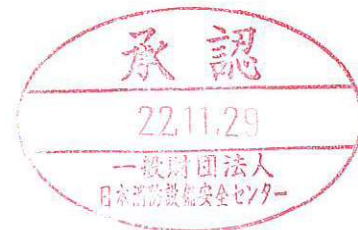 承認
22.11.29
一般財団法人
日本消防設備安全センター